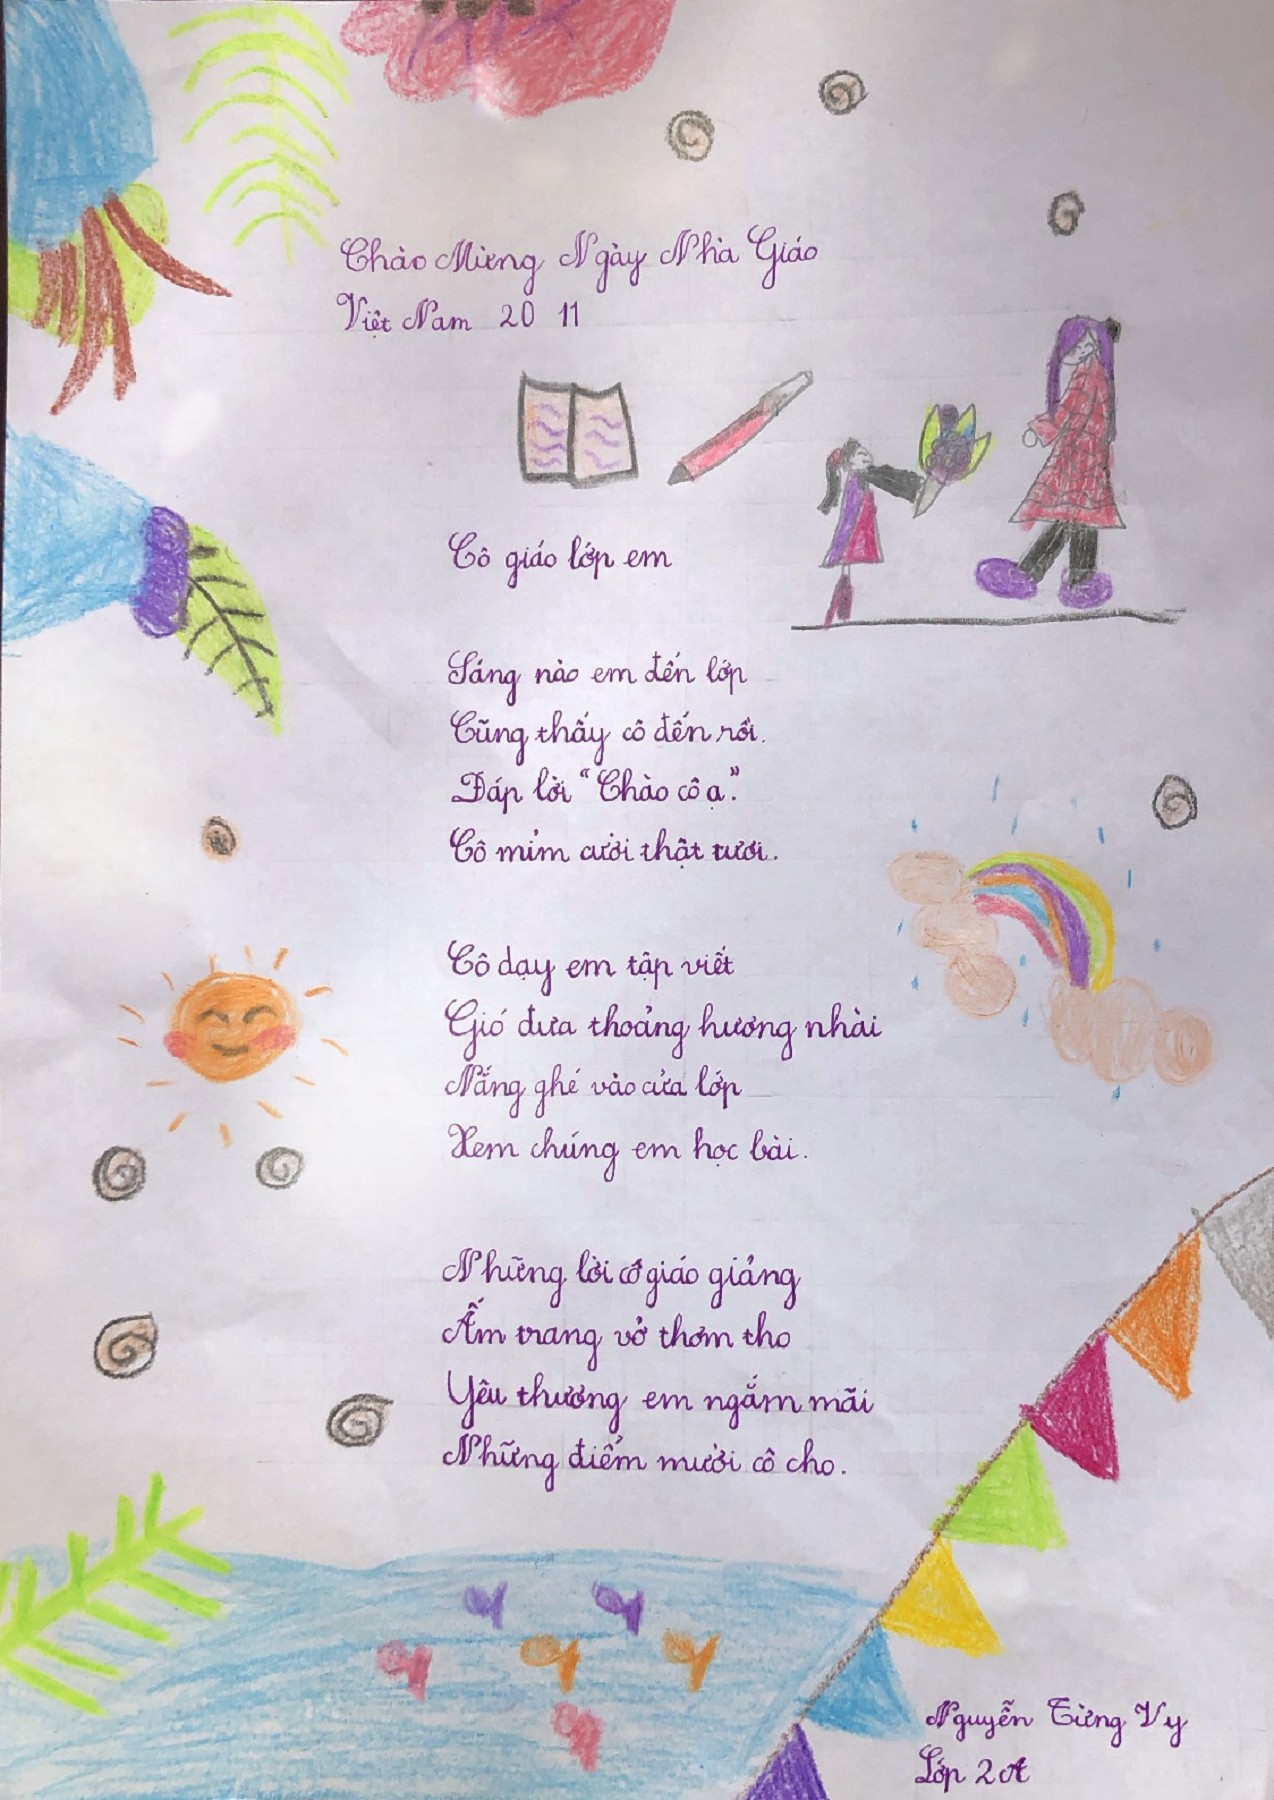 Chào Mừng Ngày Nhà Giáo
Việt Nam 20 11
Cô giáo lớp em
Sáng nào em đến lớp
Cũng thấy cô đến rồi.
Đáp lời "Chào cô ạ".
Cô mỉm cười thật tươi.
Cô dạy em tập viết
Gió đưa thoảng hương nhài
Nắng ghé vào cửa lớp
Xem chúng em học bài.
Những lời cô giáo giảng
Ấm trang vở thơm tho
Yêu thương em ngắm mãi
Những điểm mười cô cho.
Nguyễn Tường Vy
Lớp 2A